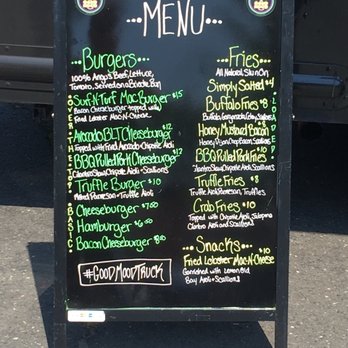 MENU
Burgers
100% Angus Beef, Lettuce,
Tomato, Served on a Brioche Bun
Surf-N-Turf Mac Burger $15
Bacon Cheeseburger topped w/
Fried Lobster Mac-N-Cheese
Avocado BLT Cheeseburger $12
Topped with Fried Avocado + Chipotle Aioli
BBQ Pulled Pork Cheeseburger $12
Cilantro Slaw, Chipotle Aioli + Scallions
Truffle Burger $10
Shaved Parmesan + Truffle Aioli
Cheeseburger $7.50
Hamburger $6.50
Bacon Cheeseburger
#GOODMOODTRUCK
Fries
All Natural, Skin On
Simply Salted $4
Buffalo Fries $8
Buffalo, Gorgonzola, Celery, Scallions
Honey Mustard Bacon $8
Honey Dijon, Chop Bacon, Scallions
BBQ Pulled Pork Fries $10
Cilantro Slaw, Chipotle Aioli, Scallions
Truffle Fries $8
Truffle Aioli, Parmesan, Truffles
Crab Fries $10
Topped with Chipotle Aioli, Jalapeno
Cilantro Aioli and Scallions
Snacks
Fried Lobster Mac-N-Cheese $10
Garnished with Lemon, Old
Bay Aioli + Scallions
LOADED
BASIC